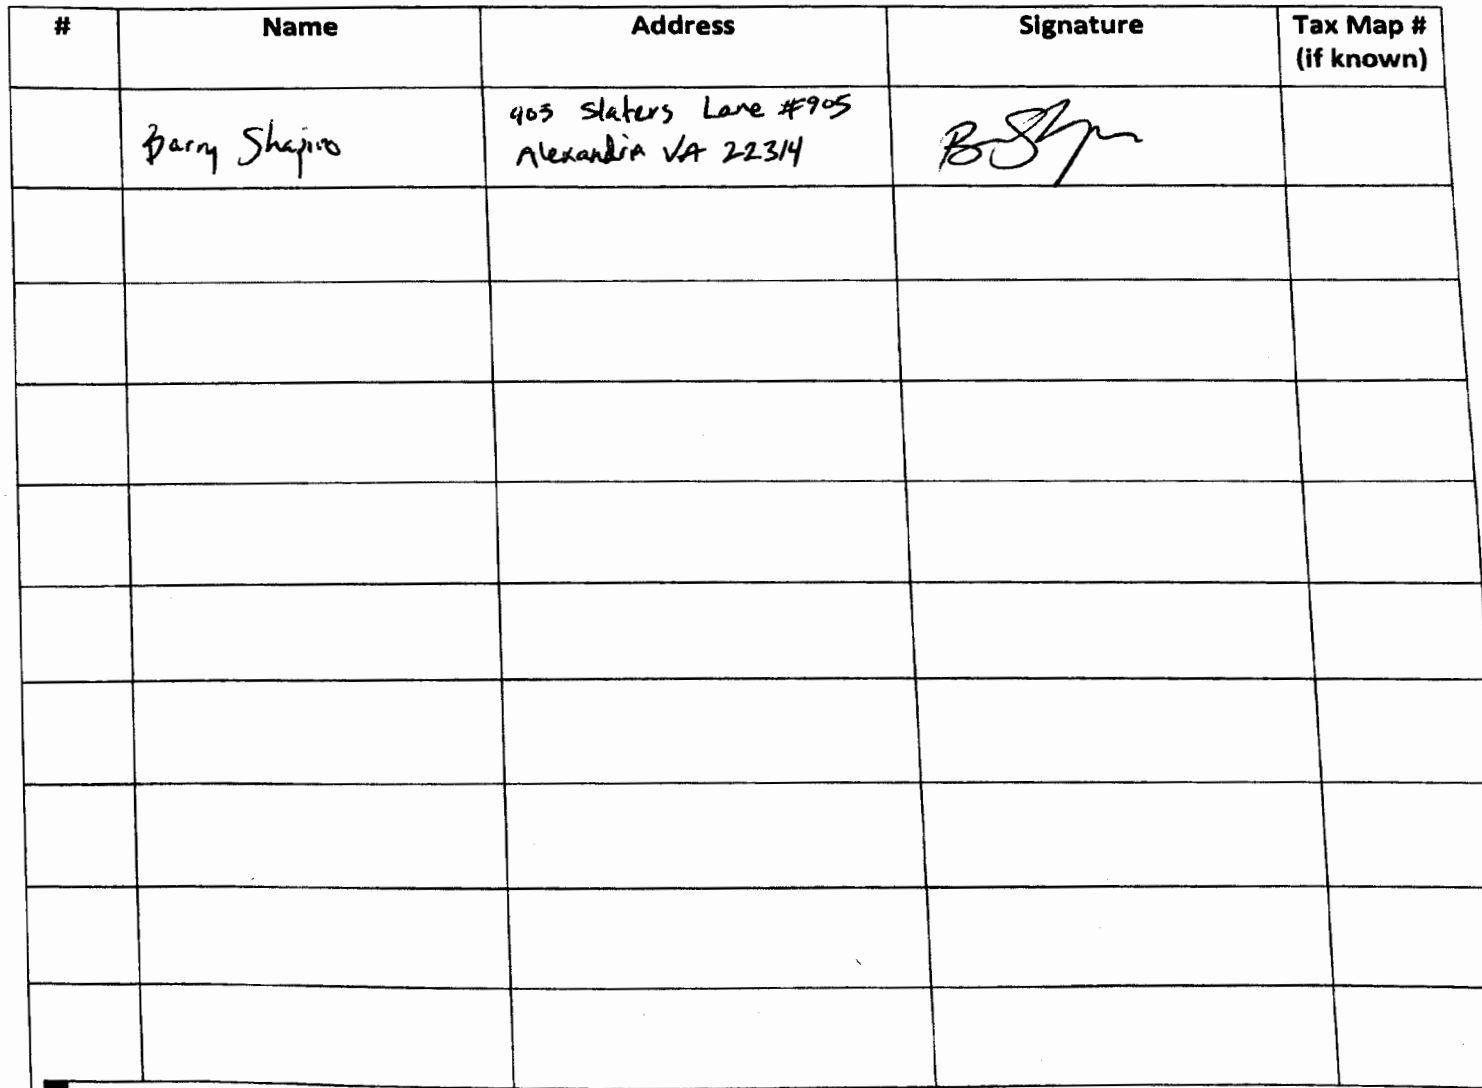 # Name Address Signature Tax Map #
(if known)
Barry Shapiro
903 Slaters Lane #905
Alexandria VA 22314